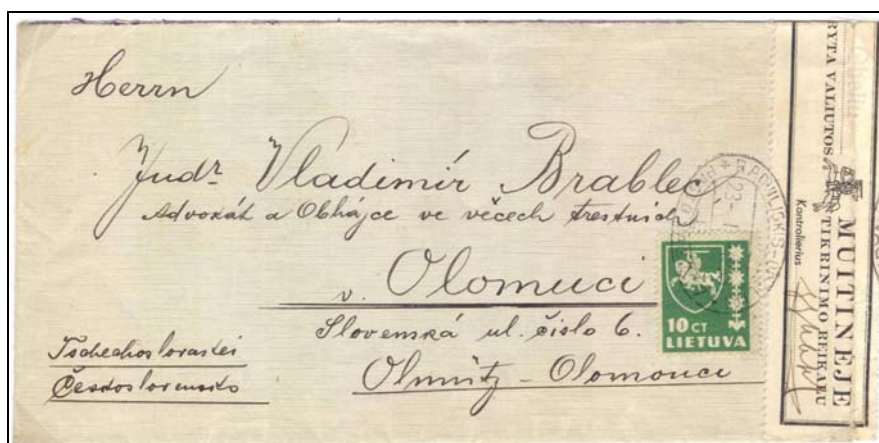 Herrn
Judr Vladimír Brablec
Advokát a Obhájce ve věcech trestních
v. Olomuci
Slovenská ul. čislo 6.
Olmütz - Olomouci
Tschechoslovakei
Československo
10 CT
LIETUVA
RYTA VALIUTOS
MUITINĖJE
TIKRINIMO REIKALU
Kontrolierius